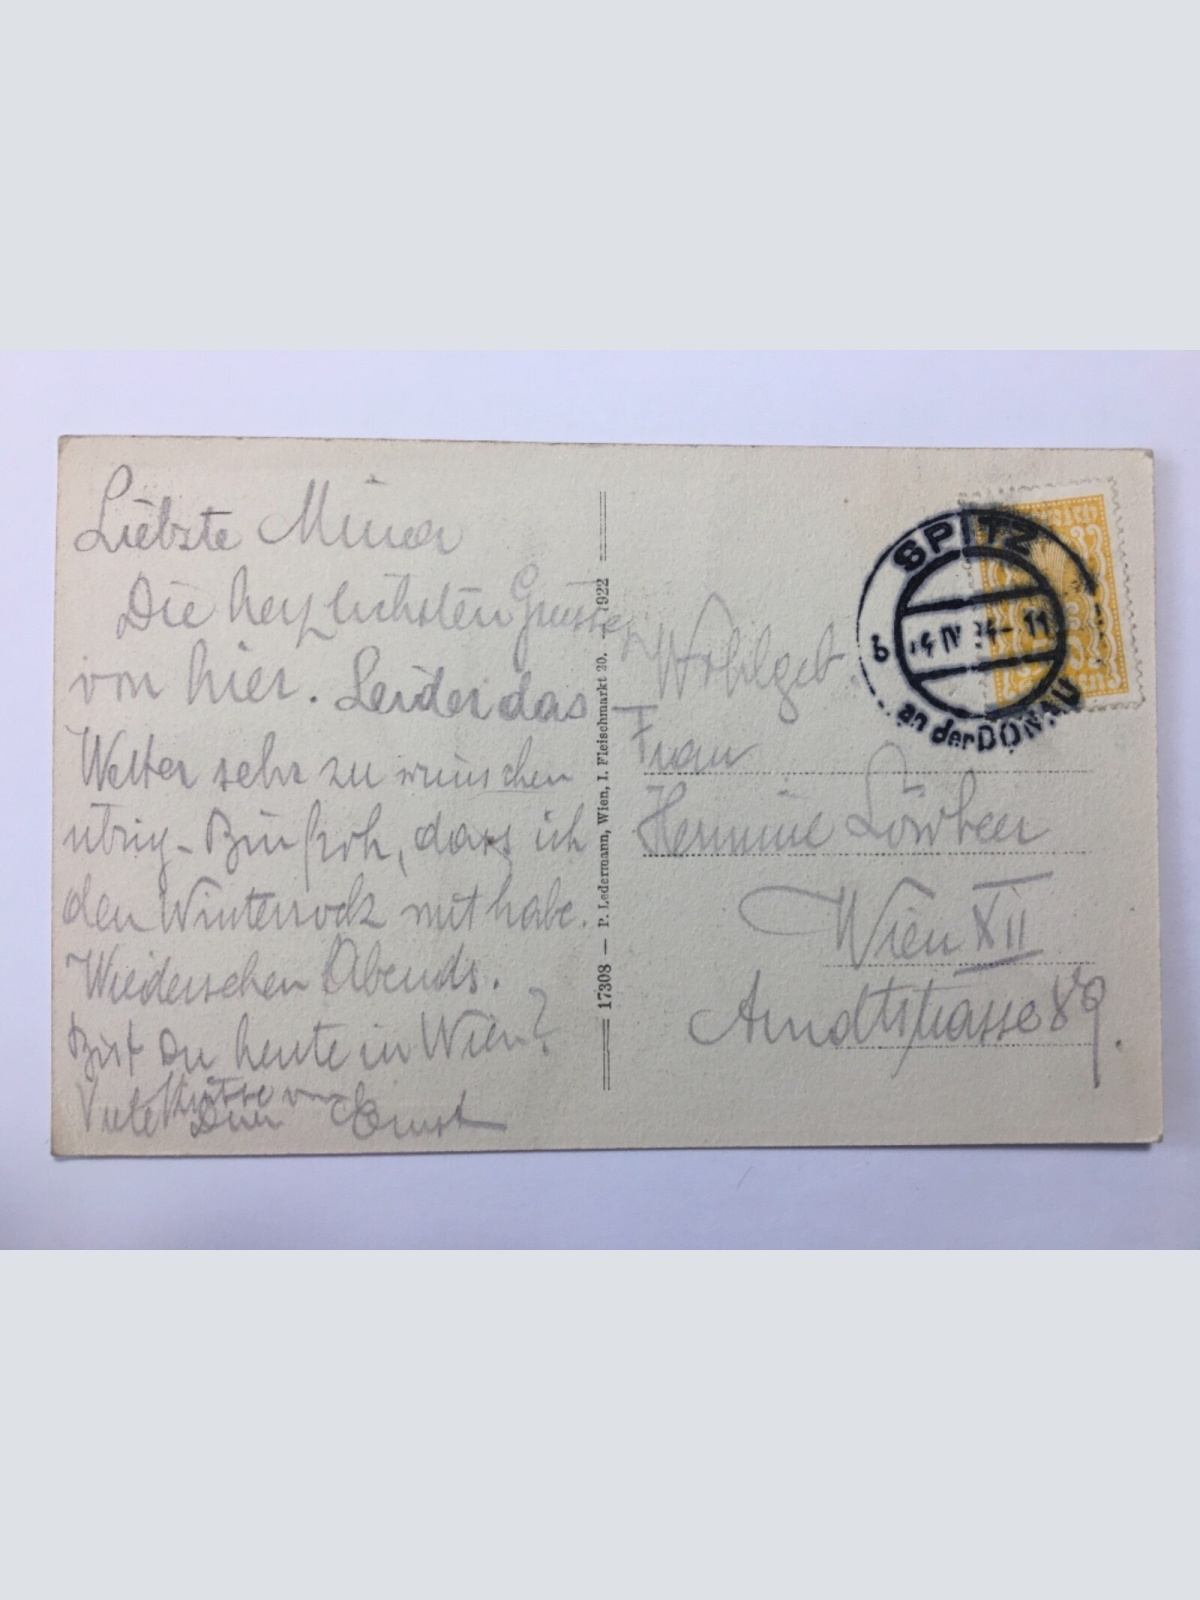 Liebste Minna
Die herzlichsten Grüsse
von hier. Leider das
Wetter sehr zu wünschen
übrig - Bin froh, dass ich
den Winterrock mit habe.
Wiedersehen Abends.
Bist Du heute in Wien?
Viele Küsse von
Dein Ernst
17308 — P. Ledermann, Wien, I. Fleischmarkt 20. 1922
SPITZ
b
IV
11
an der DONAU
Wohlgeb.
Frau
Hermine Lörbeer
Wien XII
Arndtstrasse 89.